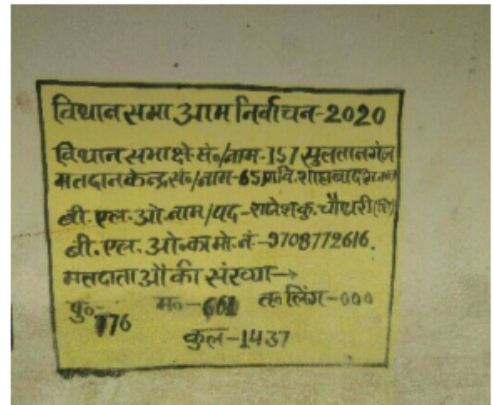 विधानसभा आम निर्वाचन-2020
विधानसभा क्षे. सं०/नाम-157 सुलतानगंज
मतदान केन्द्र सं०/नाम-65 प्रा.वि. शाहाबाद
बी.एल.ओ. नाम/पद-राजेश कु. चौधरी
बी.एल.ओ. का मो.नं.-9708772616.
मतदाताओं की संख्या→
पु०-776 म०-661 त० लिंग-000
कुल-1437